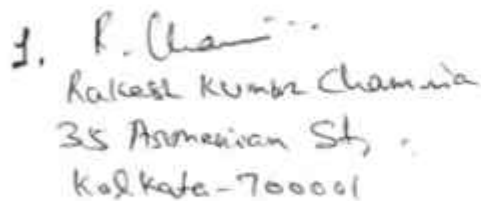 1. R. Cham...
Rakesh Kumar Chamaria
35 Armenian St,
Kolkata-700001